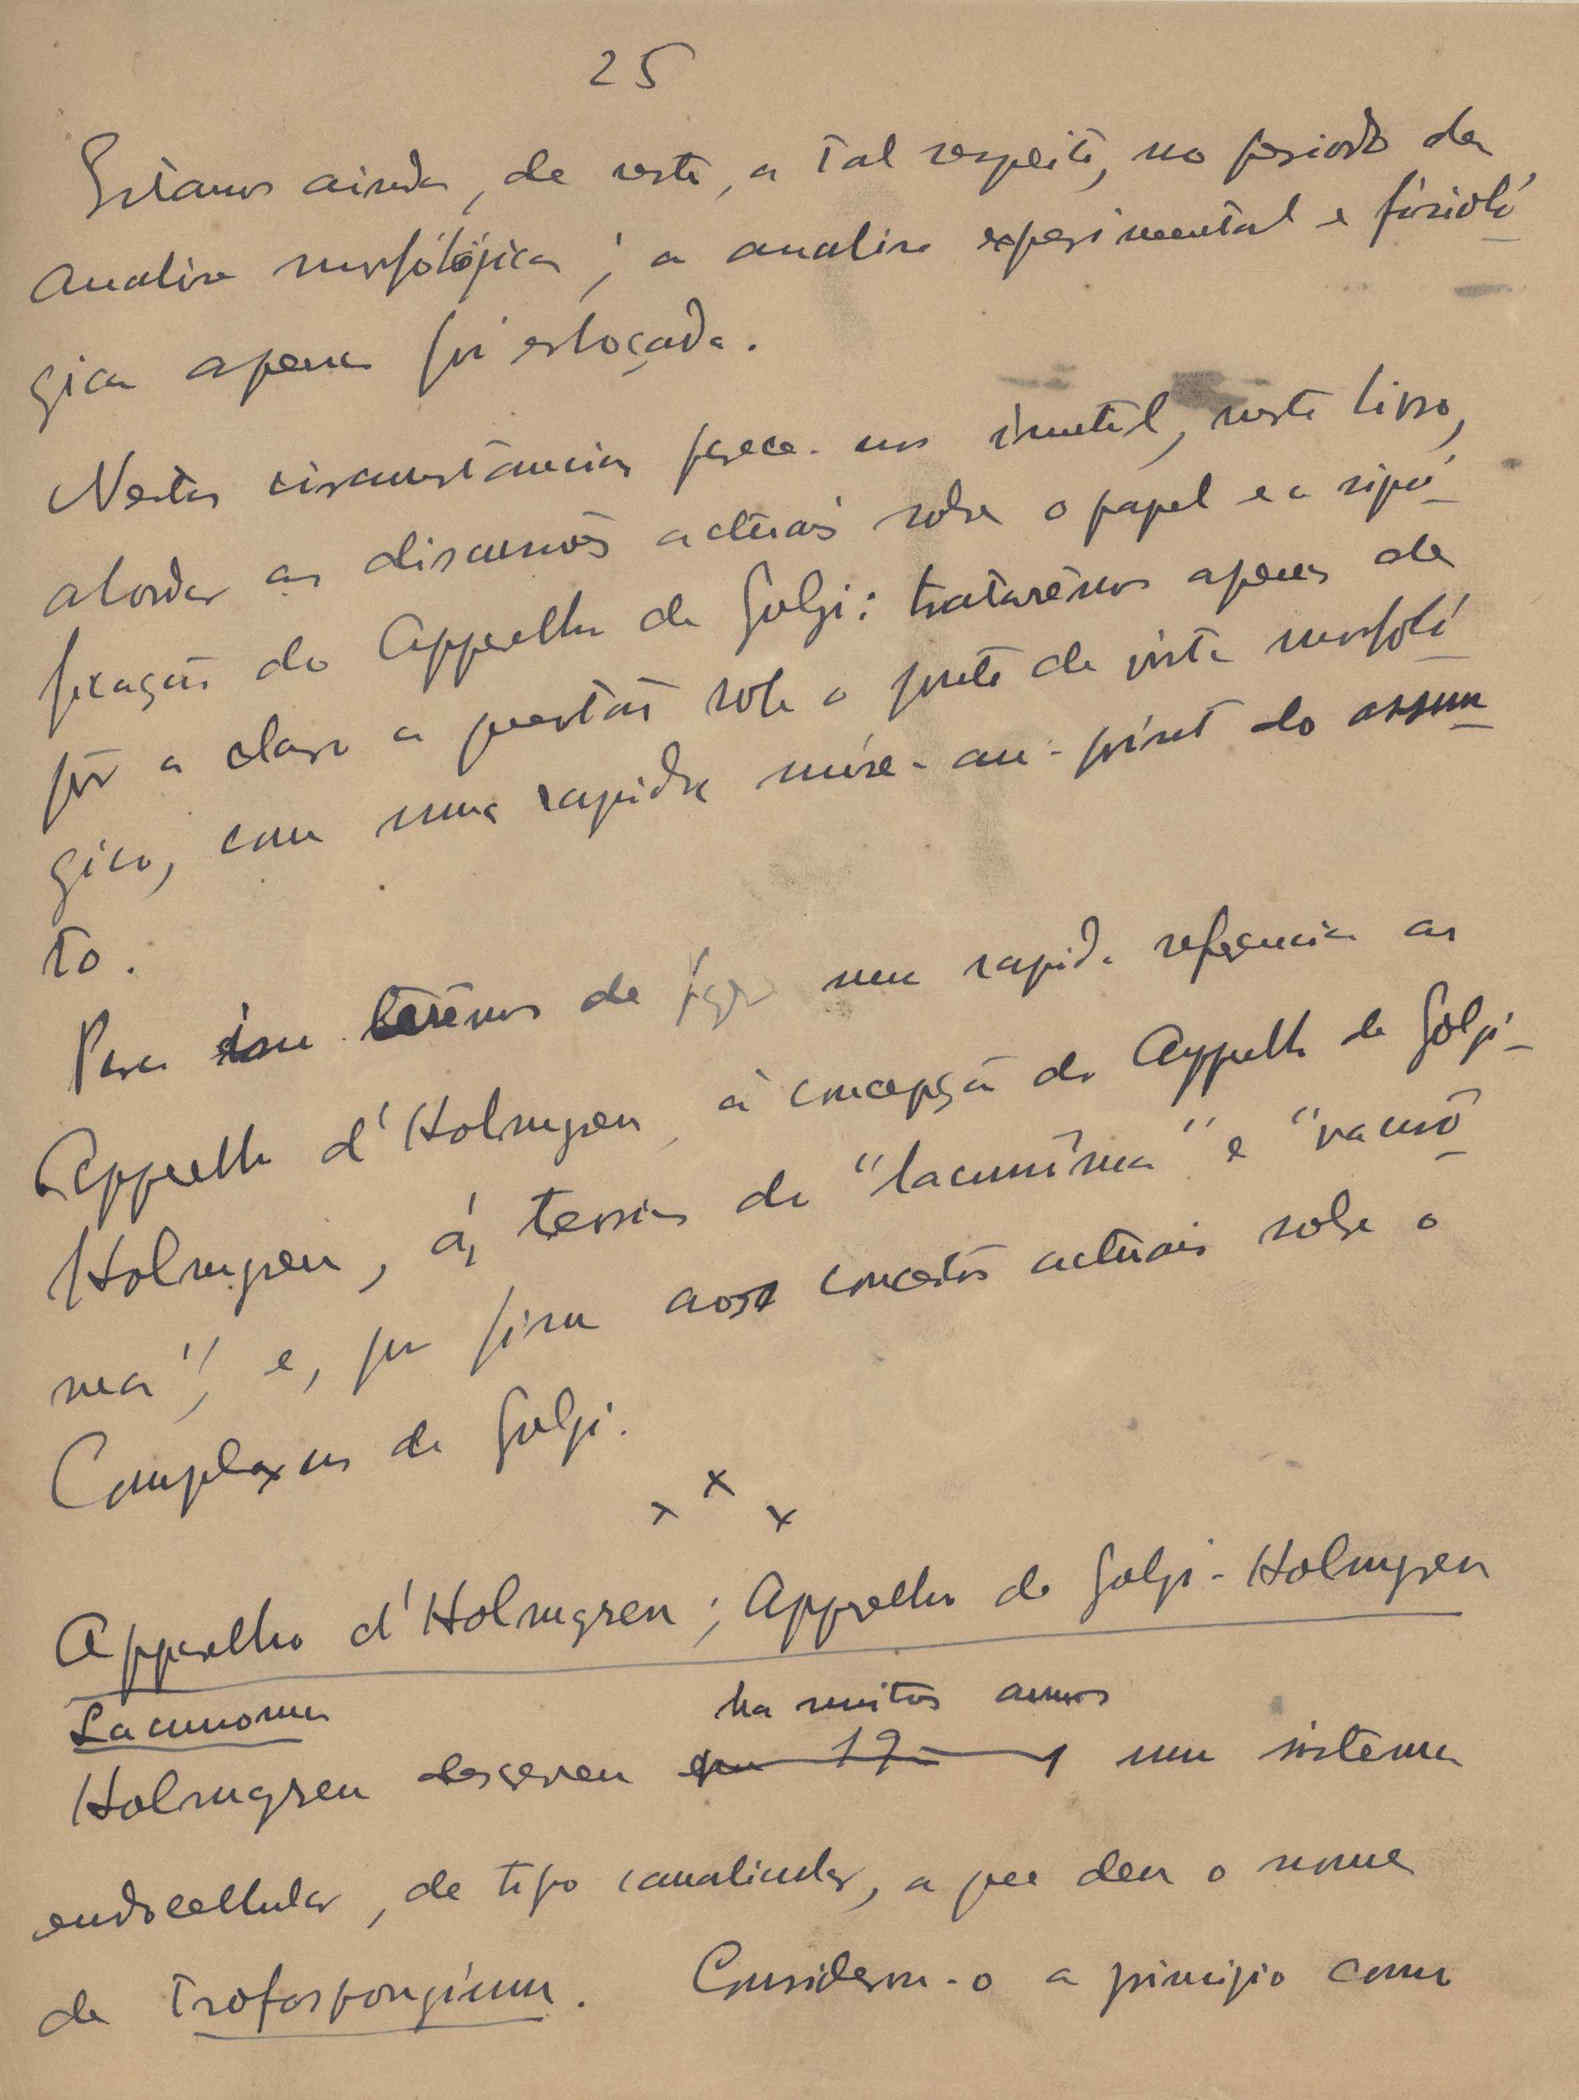 25
Estamos ainda, de resto, a tal respeito, no periodo da
analise morfólójica; a analise experimental e fisioló
gica apenas foi esboçada.
Nestas circumstancias parece-nos inutil, neste livro,
abordar as discussões actuais sobre o papel e a
do Apparelho de Golgi: tratarêmos apenas de
pôr a claro a questão sob o ponto de vista morfoló
gico, com uma rapida mise-au-point do assum
to.
Para isso terêmos de fazer uma rapida referencia ao
Apparelho d'Holmgren, à concepção do Apparelho de Golgi-
Holmgren, ás teorias do "lacunôma" e "vacuô
ma", e, por fim aos conceitos actuais sobre o
Complexus de Golgi.
x x x
Apparelho d'Holmgren; Apparelho de Golgi-Holmgren
Lacunoma
ha muitos annos
Holmgren descreveu em 19 um sistema
endocellular, de tipo canalicular, a que deu o nome
de Trofospongium. Considerou-o a principio como